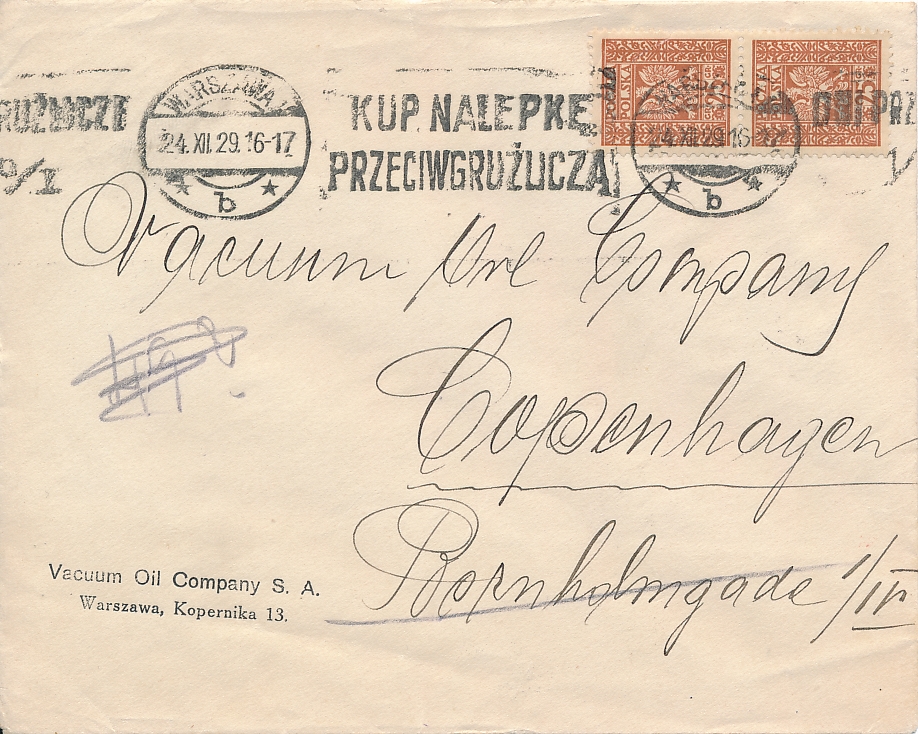 WARSZAWA 1
24.XII.29.16-17
b
KUP NALEPKĘ
PRZECIWGRUŹLICZĄ!
POLSKA
24.XII.29.16-17
b
Vacuum Oil Company
Copenhagen
Bornholmgade 1/IV
Vacuum Oil Company S. A.
Warszawa, Kopernika 13.